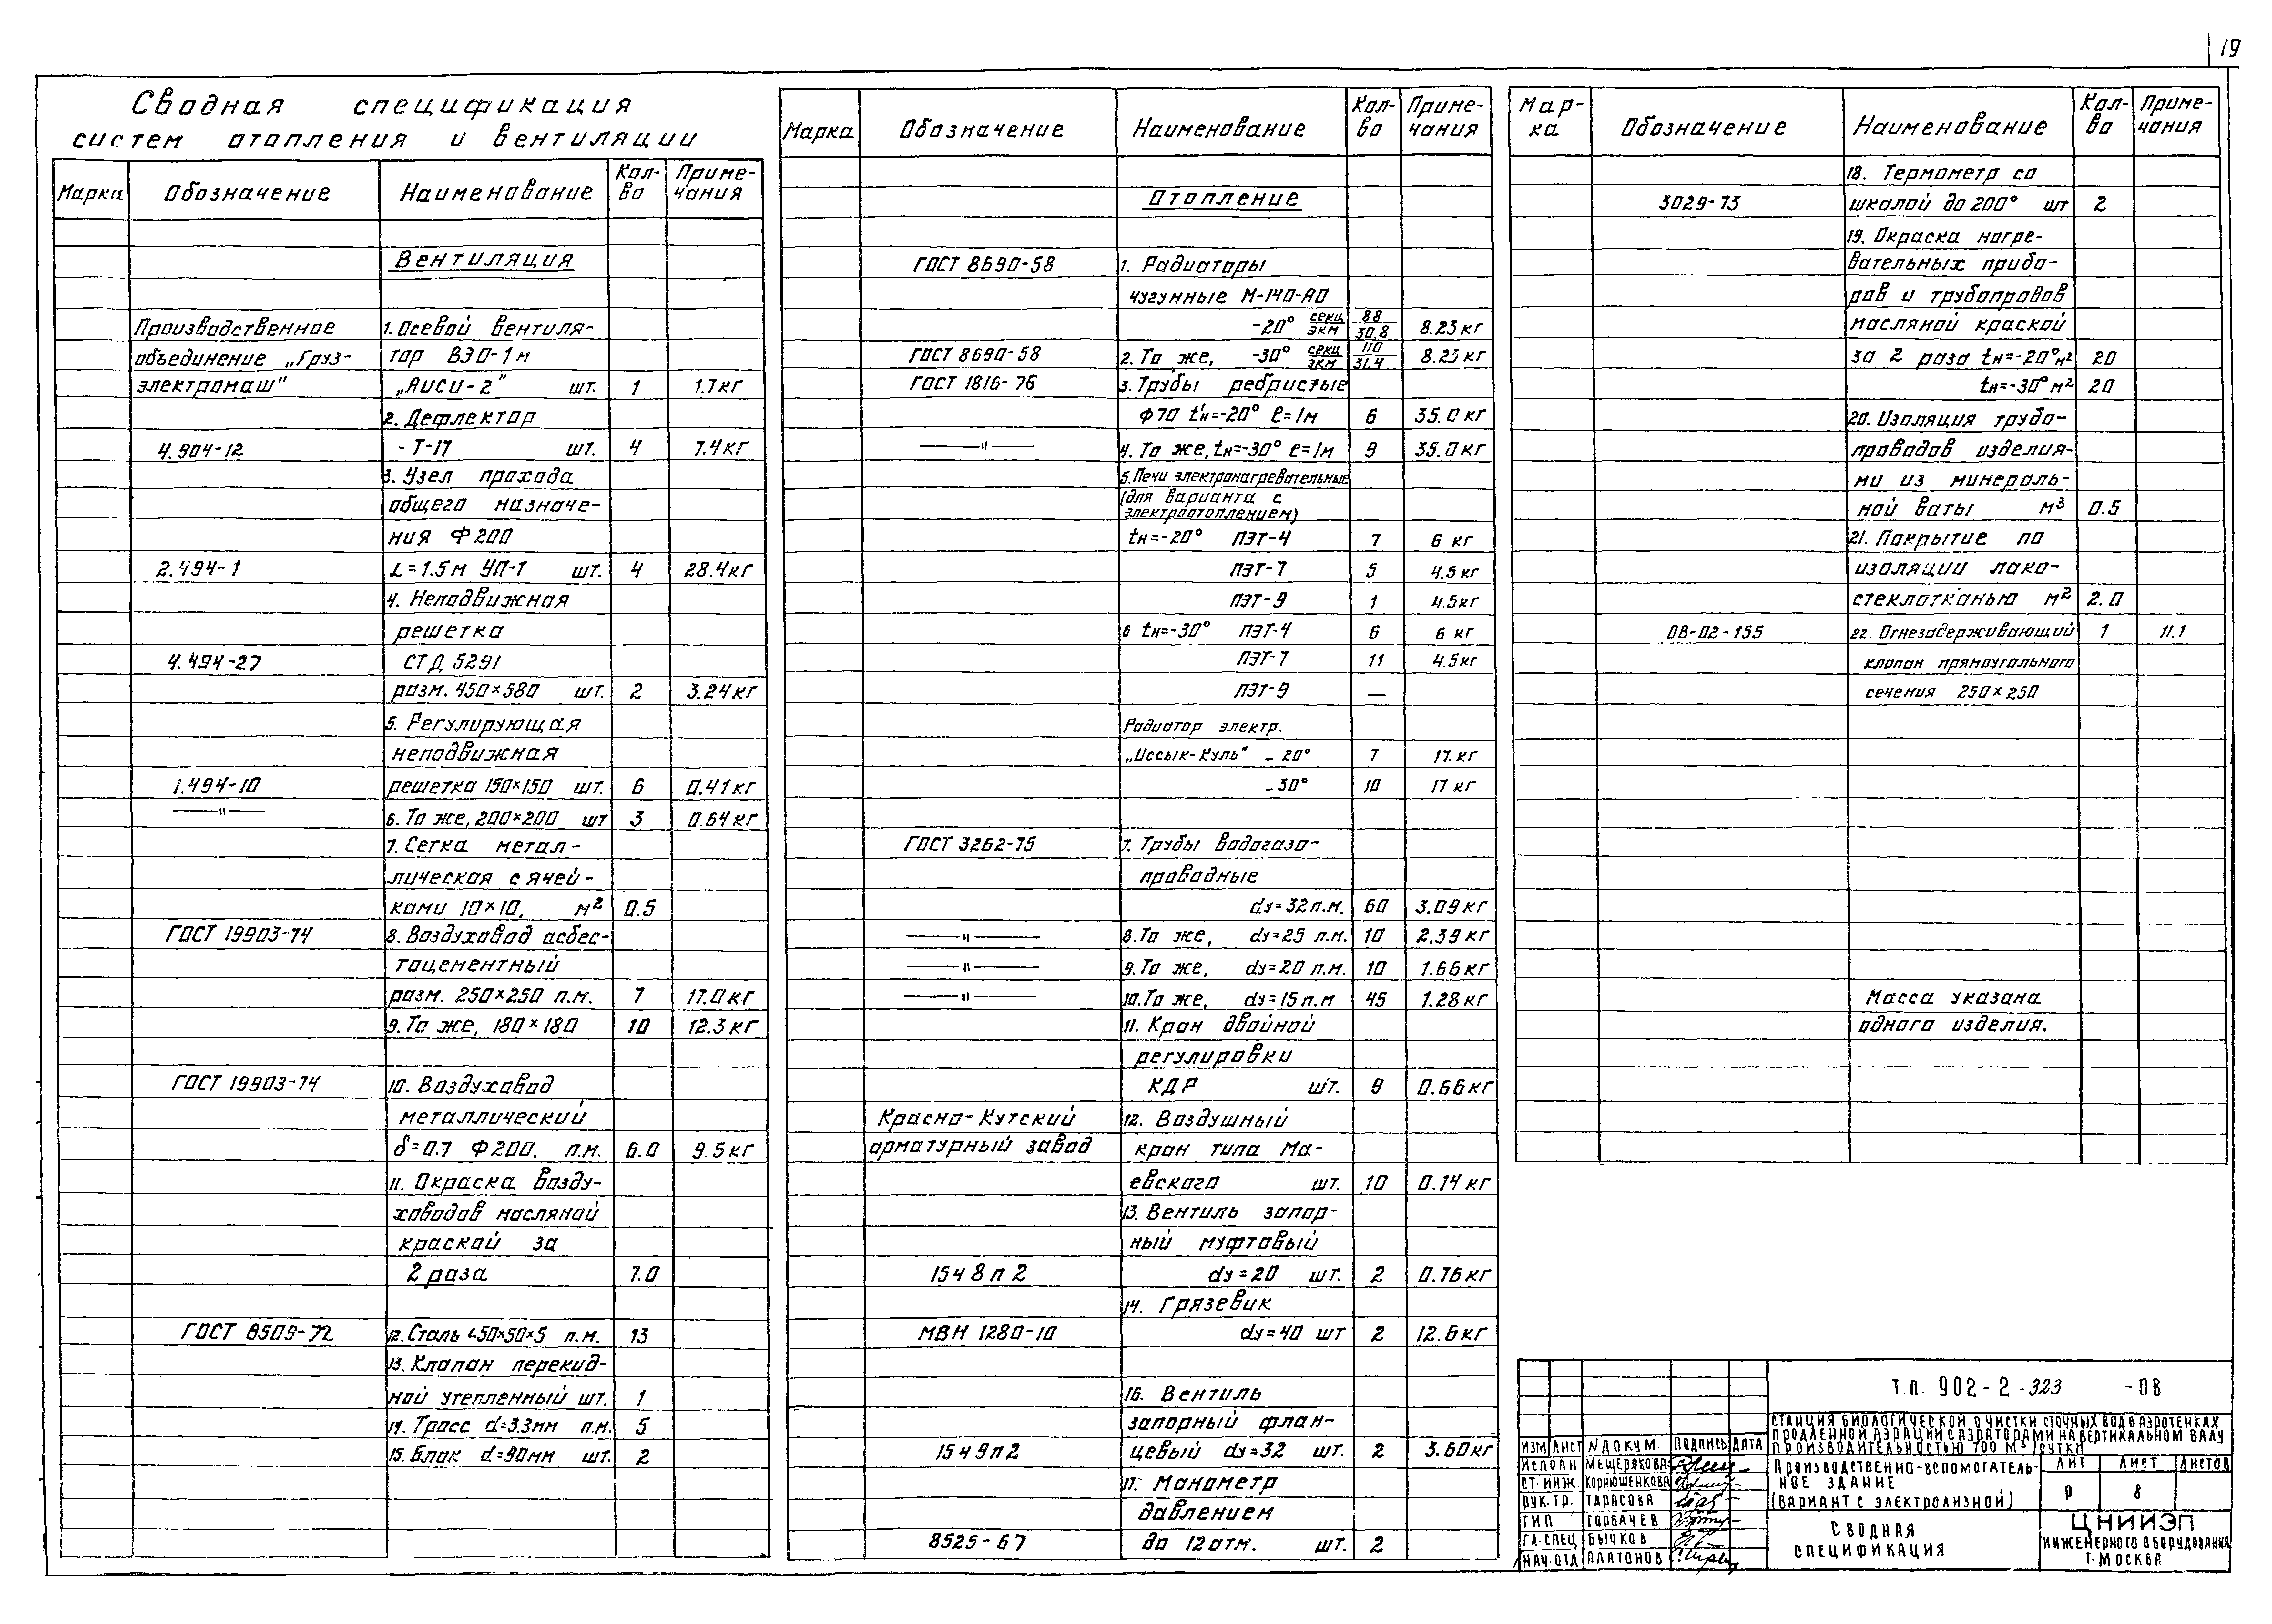 19
Сводная спецификация
систем отопления и вентиляции
Марка Обозначение Наименование Кол-во Примечания
Вентиляция
Производственное 1. Осевой вентиля-
объединение „Груз- тор ВЭО-1м
электромаш" „Лиси-2" шт. 1 1.7кг
2. Дефлектор
4.904-12 - Т-17 шт. 4 7.4кг
3. Узел прохода
общего назначе-
ния Ф200
2.494-1 L=1.5м УП-1 шт. 4 28.4кг
4. Неподвижная
решетка
4.494-27 СТД 5291
разм. 450×580 шт. 2 3.24кг
5. Регулирующая
неподвижная
1.494-10 решетка 150×150 шт. 6 0.41кг
—"— 6. То же, 200×200 шт 3 0.64кг
7. Сетка метал-
лическая с ячей-
ками 10×10, м² 0.5
ГОСТ 19903-74 8. Воздуховод асбес-
тоцементный
разм. 250×250 п.м. 7 17.0кг
9. То же, 180×180 10 12.3кг
ГОСТ 19903-74 10. Воздуховод
металлический
δ=0.7 Ф200. п.м. 6.0 9.5кг
11. Окраска возду-
ховодов масляной
краской за
2 раза 7.0
ГОСТ 8509-72 12. Сталь ∟50×50×5 п.м. 13
13. Клапан перекид-
ной утепленный шт. 1
14. Тросс d=3.3мм п.м. 5
15. Блок d=90мм шт. 2
Марка Обозначение Наименование Кол-во Примечания
Отопление
ГОСТ 8690-58 1. Радиаторы
чугунные М-140-АО
-20° секц/экм 88/30.8 8.23кг
ГОСТ 8690-58 2. То же, -30° секц/экм 110/31.4 8.23кг
ГОСТ 1816-76 3. Трубы ребристые
Ф70 tн=-20° ℓ=1м 6 35.0кг
—"— 4. То же, tн=-30° ℓ=1м 9 35.0кг
5. Печи электронагревательные
(для варианта с
электроотоплением)
tн=-20° ПЭТ-4 7 6 кг
ПЭТ-7 5 4.5кг
ПЭТ-9 1 4.5кг
6 tн=-30° ПЭТ-4 6 6 кг
ПЭТ-7 11 4.5кг
ПЭТ-9 —
Радиатор электр.
„Иссык-Куль" - 20° 7 17.кг
- 30° 10 17 кг
ГОСТ 3262-75 7. Трубы водогазо-
проводные
dу=32п.м. 60 3.09кг
—"— 8. То же, dу=25 п.м. 10 2,39кг
—"— 9. То же, dу=20 п.м. 10 1.66кг
—"— 10. То же, dу=15п.м 45 1.28кг
11. Кран двойной
регулировки
КДР шт. 9 0.66кг
Красно-Кутский 12. Воздушный
арматурный завод кран типа Ма-
евского шт. 10 0.14кг
13. Вентиль запор-
ный муфтовый
15ч8п2 dу=20 шт. 2 0.76кг
14. Грязевик
МВН 1280-10 dу=40 шт 2 12.6кг
16. Вентиль
запорный флан-
15ч9п2 цевый dу=32 шт. 2 3.60кг
17. Манометр
давлением
8525-67 до 12атм. шт. 2
Мар-ка Обозначение Наименование Кол-во Примечания
18. Термометр со
3029-73 шкалой до 200° шт 2
19. Окраска нагре-
вательных прибо-
ров и трубопровов
масляной краской
за 2 раза tн=-20°м² 20
tн=-30°м² 20
20. Изоляция трубо-
проводов изделия-
ми из минераль-
ной ваты м³ 0.5
21. Покрытие по
изоляции лако-
стеклотканью м² 2.0
ОВ-02-155 22. Огнезадерживающий 1 11.1
клапан прямоугольного
сечения 250×250
Масса указана
одного изделия.
Т.П. 902-2-323 -ОВ
СТАНЦИЯ БИОЛОГИЧЕСКОЙ ОЧИСТКИ СТОЧНЫХ ВОД В АЭРОТЕНКАХ
ПРОДЛЕННОЙ АЭРАЦИИ С АЭРАТОРАМИ НА ВЕРТИКАЛЬНОМ ВАЛУ
ПРОИЗВОДИТЕЛЬНОСТЬЮ 700 М³/СУТКИ
ИЗМ ЛИСТ N ДОКУМ. ПОДПИСЬ ДАТА
ИСПОЛН МЕЩЕРЯКОВА
СТ. ИНЖ. КОРНЮШЕНКОВА
РУК. ГР. ТАРАСОВА
ГИП ГОРБАЧЕВ
ГЛ. СПЕЦ БЫЧКОВ
НАЧ. ОТД ПЛАТОНОВ
ПРОИЗВОДСТВЕННО-ВСПОМОГАТЕЛЬ-
НОЕ ЗДАНИЕ
(ВАРИАНТ С ЭЛЕКТРОЛИЗНОЙ)
ЛИТ ЛИСТ ЛИСТОВ
Р 8
СВОДНАЯ
СПЕЦИФИКАЦИЯ
ЦНИИЭП
ИНЖЕНЕРНОГО ОБОРУДОВАНИЯ
Г. МОСКВА